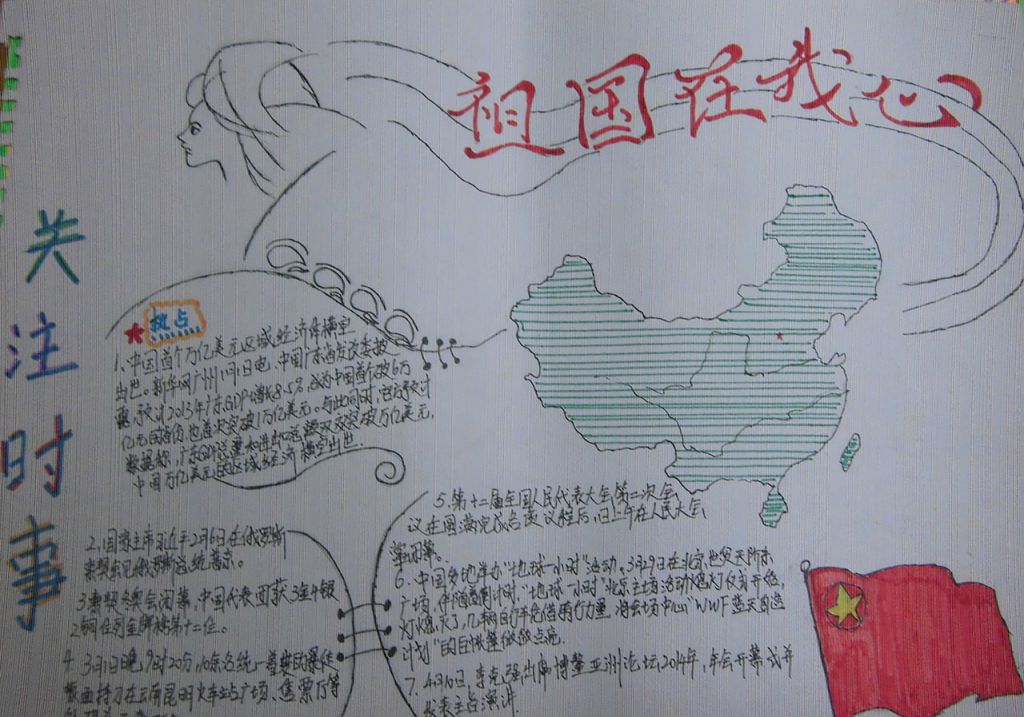 祖国在我心
关注时事
热点
1、中国首个万亿美元区域经济体横空
出世。新华网广州1月1日电,中国广东省发改委披
露,预计2013年广东GDP增长8.5%,成为中国首个破6万
亿元的省份,也首次突破1万亿美元。与此同时,官方预计
数据称,广东外贸总量和进出口总额双双突破万亿美元,
中国万亿美元的区域经济横空出世.
2、国家主席习近平2月6日在俄罗斯
索契会见俄罗斯总统普京。
3、索契冬奥会闭幕,中国代表团获3金4银
2铜位列金牌榜第十二位。
4、3月1日晚,9时20分,10余名统一着装的暴徒
蒙面持刀在云南昆明火车站广场、售票厅等
5、第十二届全国人民代表大会第二次会
议在圆满完成各项议程后,13日上午在人民大会
堂闭幕。
6、中国多地举办"地球一小时"活动。3月29日在北京
广场,伴随着倒计时,"地球一小时"北京主场活动熄灯仪式开始,
灯熄灭了,几辆自行车凭借骑行力量,将会场中心"WWF蓝天自造
计划"的白帐篷做做点亮.
7、4月10日,李克强出席博鳌亚洲论坛2014年年会开幕式并
发表主旨演讲.